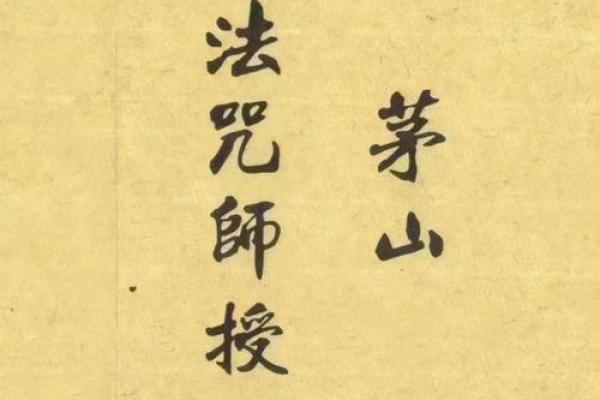 茅山
法咒師授